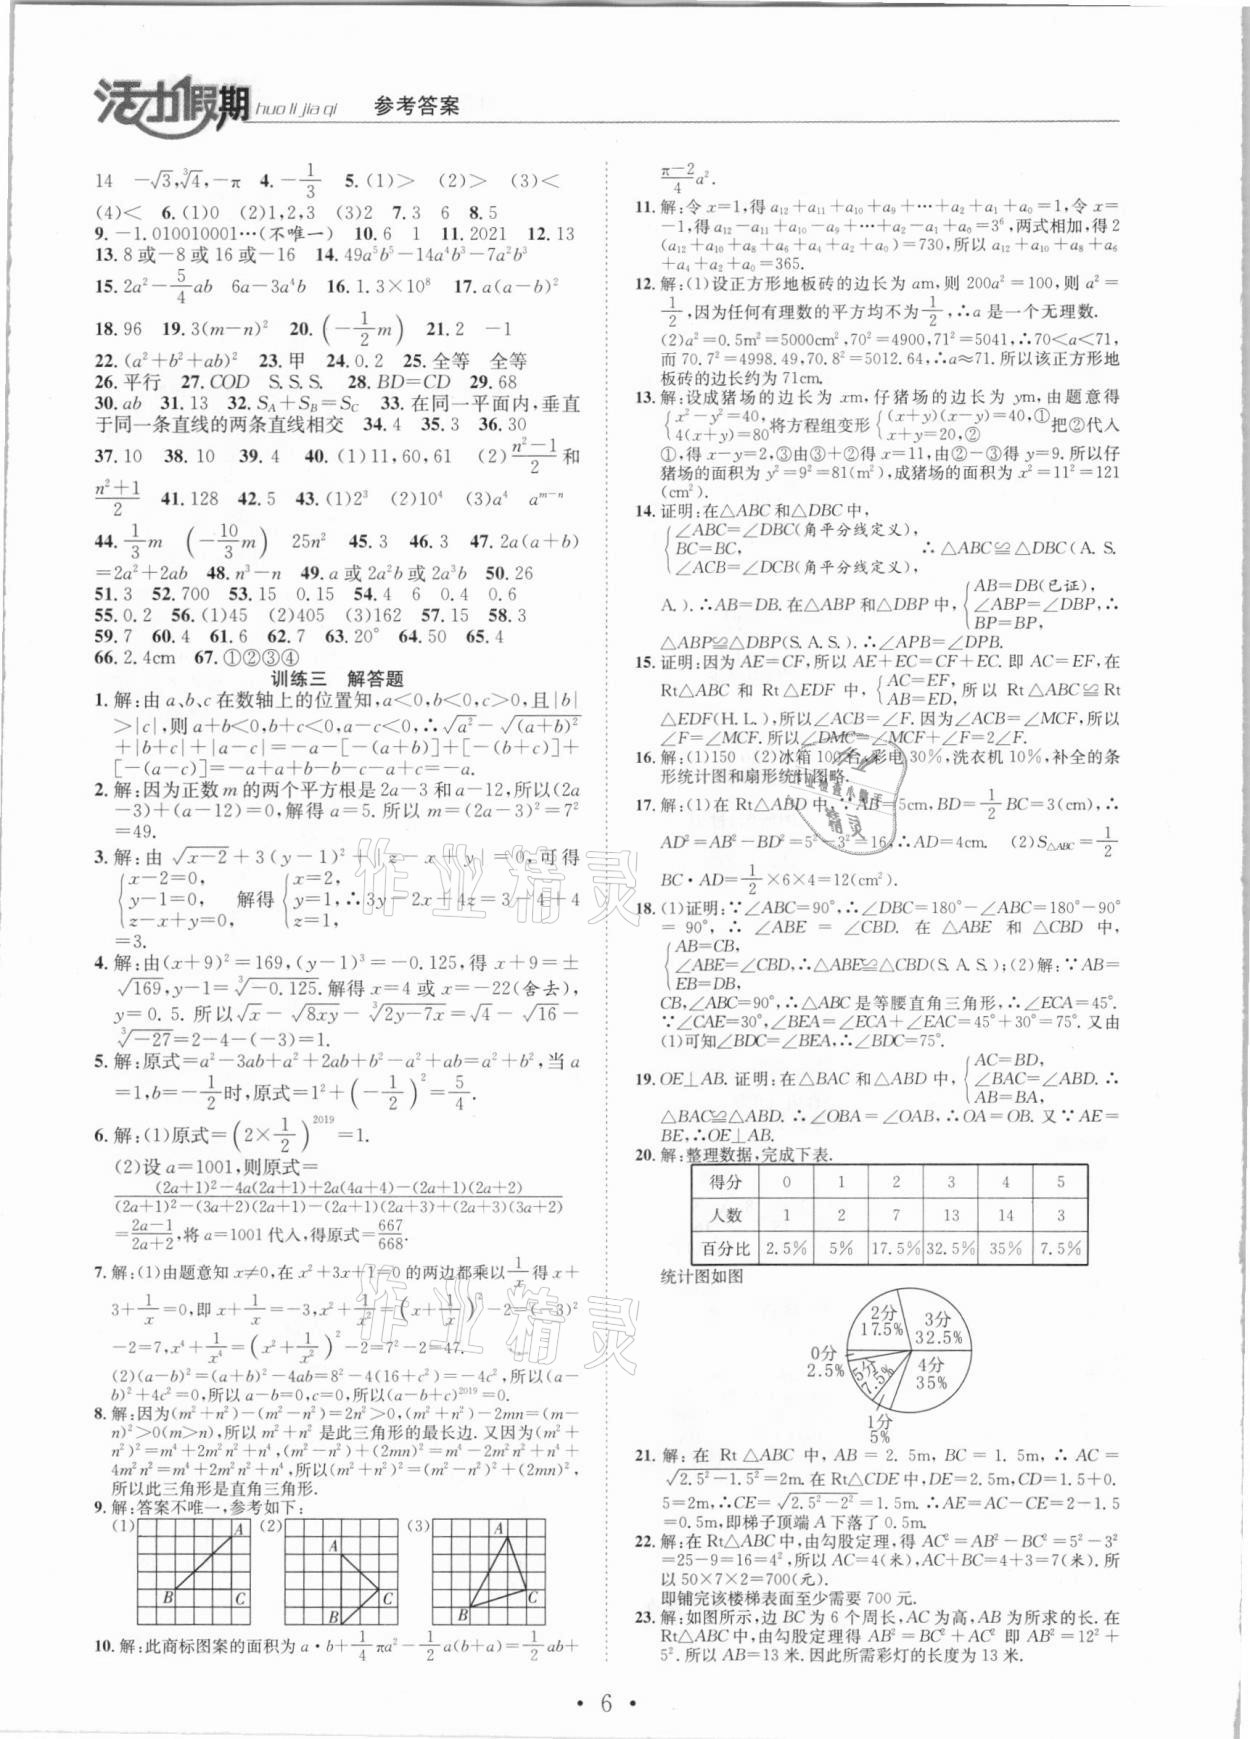 活力假期 huo li jia qi 参考答案
14 -√3,∛4,-π 4.-1/3 5.(1)> (2)> (3)<
(4)< 6.(1)0 (2)1,2,3 (3)2 7.3 6 8.5
9.-1.010010001…(不唯一) 10.6 1 11.2021 12.13
13.8或-8或16或-16 14.49a⁵b⁵-14a⁴b³-7a²b³
15.2a²-5/4ab 6a-3a⁴b 16.1.3×10⁸ 17.a(a-b)²
18.96 19.3(m-n)² 20.(-1/2m) 21.2 -1
22.(a²+b²+ab)² 23.甲 24.0.2 25.全等 全等
26.平行 27.COD S.S.S. 28.BD=CD 29.68
30.ab 31.13 32.S_A+S_B=S_C 33.在同一平面内,垂直
于同一条直线的两条直线相交 34.4 35.3 36.30
37.10 38.10 39.4 40.(1)11,60,61 (2)(n²-1)/2和
(n²+1)/2 41.128 42.5 43.(1)2³ (2)10⁴ (3)a⁴ aᵐ⁻ⁿ
44.1/3m (-10/3m) 25n² 45.3 46.3 47.2a(a+b)
=2a²+2ab 48.n³-n 49.a或2a²b或2a³b 50.26
51.3 52.700 53.15 0.15 54.4 6 0.4 0.6
55.0.2 56.(1)45 (2)405 (3)162 57.15 58.3
59.7 60.4 61.6 62.7 63.20° 64.50 65.4
66.2.4cm 67.①②③④
训练三 解答题
1.解:由a、b、c在数轴上的位置知,a<0,b<0,c>0,且|b|
>|c|,则a+b<0,b+c<0,a-c<0,∴√a²-√(a+b)²
+|b+c|+|a-c|=-a-[-(a+b)]+[-(b+c)]+
[-(a-c)]=-a+a+b-b-c-a+c=-a.
2.解:因为正数m的两个平方根是2a-3和a-12,所以(2a
-3)+(a-12)=0,解得a=5.所以m=(2a-3)²=7²
=49.
3.解:由√(x-2)+3(y-1)²+|z-x+y|=0,可得
{x-2=0, y-1=0, z-x+y=0, 解得{x=2, y=1, z=1, ∴3y-2x+4z=3-4+4
=3.
4.解:由(x+9)²=169,(y-1)³=-0.125,得x+9=±
√169,y-1=∛-0.125.解得x=4或x=-22(舍去),
y=0.5.所以√x-√8xy-∛(2y-7x)=√4-√16-
∛-27=2-4-(-3)=1.
5.解:原式=a²-3ab+a²+2ab+b²-a²+ab=a²+b²,当a
=1,b=-1/2时,原式=1²+(-1/2)²=5/4.
6.解:(1)原式=(2×1/2)²⁰¹⁹=1.
(2)设a=1001,则原式=
((2a+1)²-4a(2a+1)+2a(4a+4)-(2a+1)(2a+2))/((2a+1)²-(3a+2)(2a+1)-(2a+1)(2a+3)+(2a+3)(3a+2))
=(2a-1)/(2a+2),将a=1001代入,得原式=667/668.
7.解:(1)由题意知x≠0,在x²+3x+1=0的两边都乘以1/x得x+
3+1/x=0,即x+1/x=-3,x²+1/x²=(x+1/x)²-2=(-3)²
-2=7,x⁴+1/x⁴=(x²+1/x²)²-2=7²-2=47.
(2)(a-b)²=(a+b)²-4ab=8²-4(16+c²)=-4c²,所以(a-
b)²+4c²=0,所以a-b=0,c=0,所以(a-b+c)²⁰¹⁹=0.
8.解:因为(m²+n²)-(m²-n²)=2n²>0,(m²+n²)-2mn=(m-
n)²>0(m>n),所以m²+n²是此三角形的最长边.又因为(m²+
n²)²=m⁴+2m²n²+n⁴,(m²-n²)+(2mn)²=m⁴-2m²n²+n⁴+
4m²n²=m⁴+2m²n²+n⁴,所以(m²+n²)²=(m²-n²)²+(2mn)²,
所以此三角形是直角三角形.
9.解:答案不唯一,参考如下:
(1) A B C (2) A B C (3) A B C
10.解:此商标图案的面积为a·b+1/4πa²-1/2a(b+a)=1/2ab+
(π-2)/4a².
11.解:令x=1,得a₁₂+a₁₁+a₁₀+a₉+…+a₂+a₁+a₀=1,令x=
-1,得a₁₂-a₁₁+a₁₀-a₉+…+a₂-a₁+a₀=3⁶,两式相加,得2
(a₁₂+a₁₀+a₈+a₆+a₄+a₂+a₀)=730,所以a₁₂+a₁₀+a₈+a₆
+a₄+a₂+a₀=365.
12.解:(1)设正方形地板砖的边长为am,则200a²=100,则a²=
1/2,因为任何有理数的平方均不为1/2,∴a是一个无理数.
(2)a²=0.5m²=5000cm²,70²=4900,71²=5041,∴70<a<71,
而70.7²=4998.49,70.8²=5012.64,∴a≈71.所以该正方形地
板砖的边长约为71cm.
13.解:设成猪场的边长为xm,仔猪场的边长为ym,由题意得
{x²-y²=40, 4(x+y)=80将方程组变形{(x+y)(x-y)=40,① x+y=20,②把②代入
①,得x-y=2,③由③+②得x=11,由②-③得y=9.所以仔
猪场的面积为y²=9²=81(m²),成猪场的面积为x²=11²=121
(cm²).
14.证明:在△ABC和△DBC中,
{∠ABC=∠DBC(角平分线定义), BC=BC, ∠ACB=∠DCB(角平分线定义), ∴△ABC≌△DBC(A.S.
A.).∴AB=DB.在△ABP和△DBP中,{AB=DB(已证), ∠ABP=∠DBP, BP=BP, ∴
△ABP≌△DBP(S.A.S.).∴∠APB=∠DPB.
15.证明:因为AE=CF,所以AE+EC=CF+EC.即AC=EF,在
Rt△ABC和Rt△EDF中,{AC=EF, AB=ED, 所以Rt△ABC≌Rt
△EDF(H.L.),所以∠ACB=∠F.因为∠ACB=∠MCF,所以
∠F=∠MCF.所以∠DMC=∠MCF+∠F=2∠F.
16.解:(1)150 (2)冰箱100台,彩电30%,洗衣机10%,补全的条
形统计图和扇形统计图略.
17.解:(1)在Rt△ABD中,∵AB=5cm,BD=1/2BC=3(cm),∴
AD²=AB²-BD²=5²-3²=16,∴AD=4cm. (2)S△ABC=1/2
BC·AD=1/2×6×4=12(cm²).
18.(1)证明:∵∠ABC=90°,∴∠DBC=180°-∠ABC=180°-90°
=90°,∴∠ABE=∠CBD.在△ABE和△CBD中,
{AB=CB, ∠ABE=∠CBD, EB=DB, ∴△ABE≌△CBD(S.A.S.);(2)解:∵AB=
CB,∠ABC=90°,∴△ABC是等腰直角三角形,∴∠ECA=45°.
∵∠CAE=30°,∠BEA=∠ECA+∠EAC=45°+30°=75°.又由
(1)可知∠BDC=∠BEA,∴∠BDC=75°.
19.OE⊥AB.证明:在△BAC和△ABD中,{AC=BD, ∠BAC=∠ABD. AB=BA, ∴
△BAC≌△ABD.∴∠OBA=∠OAB,∴OA=OB.又∵AE=
BE,∴OE⊥AB.
20.解:整理数据,完成下表.
得分 0 1 2 3 4 5
人数 1 2 7 13 14 3
百分比 2.5% 5% 17.5% 32.5% 35% 7.5%
统计图如图
2分 17.5%
3分 32.5%
0分 2.5%
5分 7.5%
4分 35%
1分 5%
21.解:在Rt△ABC中,AB=2.5m,BC=1.5m,∴AC=
√(2.5²-1.5²)=2m.在Rt△CDE中,DE=2.5m,CD=1.5+0.
5=2m,∴CE=√(2.5²-2²)=1.5m.∴AE=AC-CE=2-1.5
=0.5m,即梯子顶端A下落了0.5m.
22.解:在Rt△ABC中,由勾股定理,得AC²=AB²-BC²=5²-3²
=25-9=16=4²,所以AC=4(米),AC+BC=4+3=7(米).所
以50×7×2=700(元).
即铺完该楼梯表面至少需要700元.
23.解:如图所示,边BC为6个周长,AC为高,AB为所求的长.在
Rt△ABC中,由勾股定理得AB²=BC²+AC²即AB²=12²+
5².所以AB=13米.因此所需彩灯的长度为13米.
作业精灵
作业精灵
作业检查小助手
精灵
· 6 ·